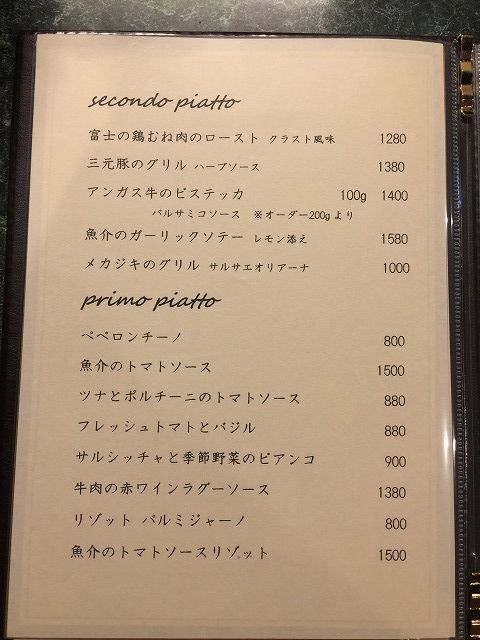 secondo piatto
富士の鶏むね肉のロースト クラスト風味 1280
三元豚のグリル ハーブソース 1380
アンガス牛のビステッカ 100g 1400
バルサミコソース ※オーダー200gより
魚介のガーリックソテー レモン添え 1580
メカジキのグリル サルサエオリアーナ 1000
primo piatto
ペペロンチーノ 800
魚介のトマトソース 1500
ツナとポルチーニのトマトソース 880
フレッシュトマトとバジル 880
サルシッチャと季節野菜のビアンコ 900
牛肉の赤ワインラグーソース 1380
リゾット パルミジャーノ 800
魚介のトマトソースリゾット 1500